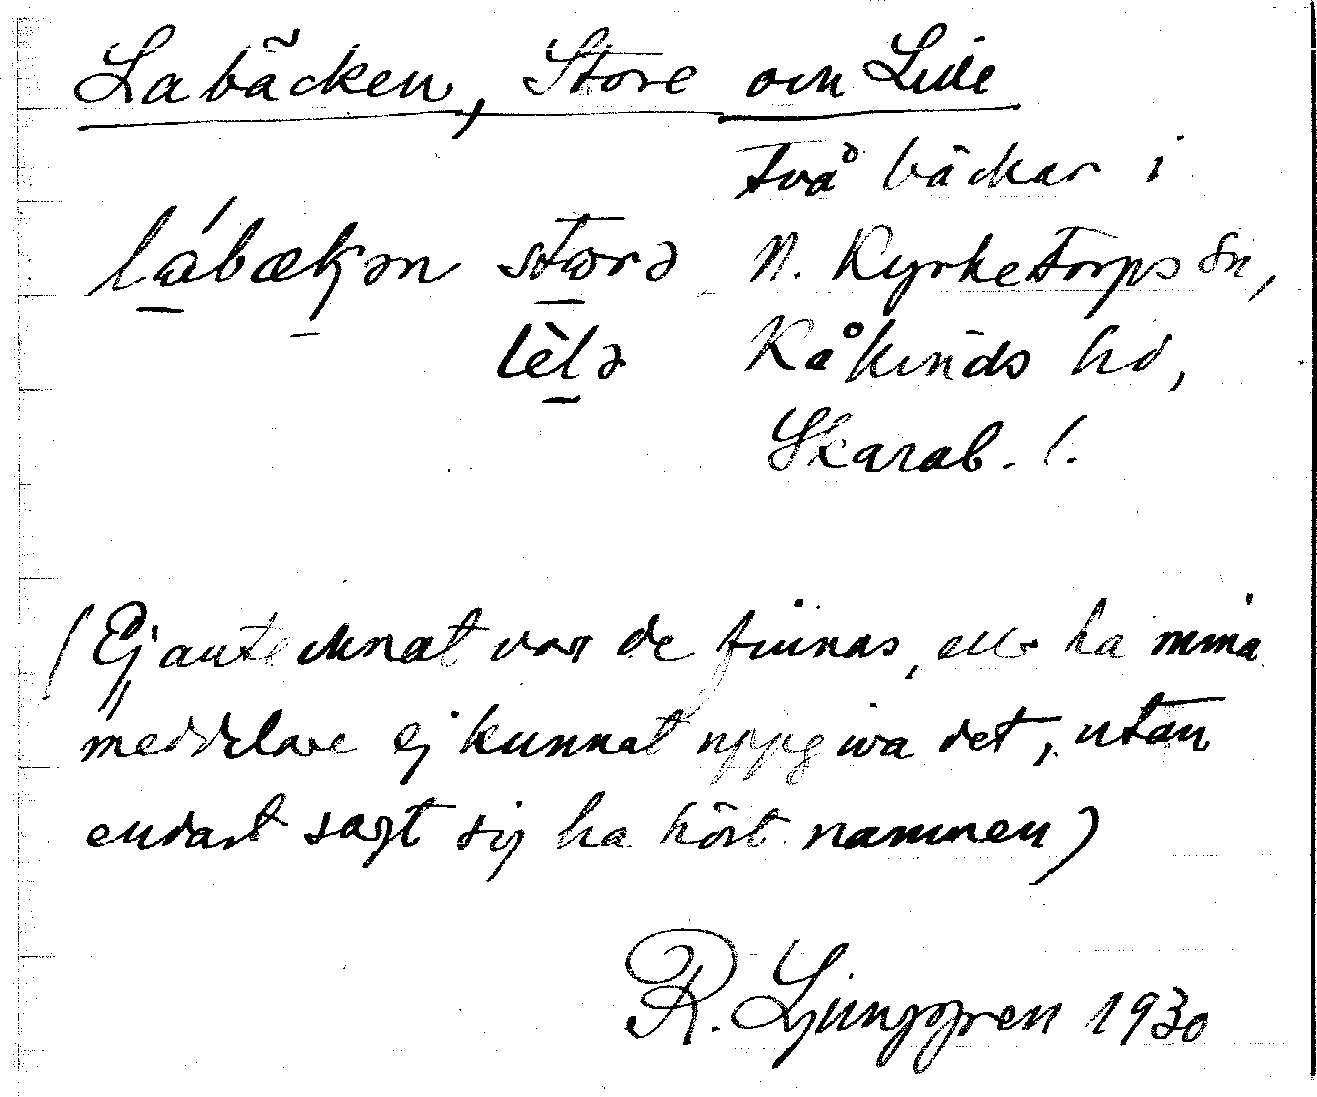 Labäcken, Store och Lille
Två bäckar i
lábækən störə N. Kyrketorps sn,
lèlə Kåkinds hd,
Skarab. l.
(Ej antecknat var de finnas, ell. ha mina
meddelare ej kunnat uppgiva det, utan
endast sagt sig ha hört namnen)
R. Ljunggren 1930